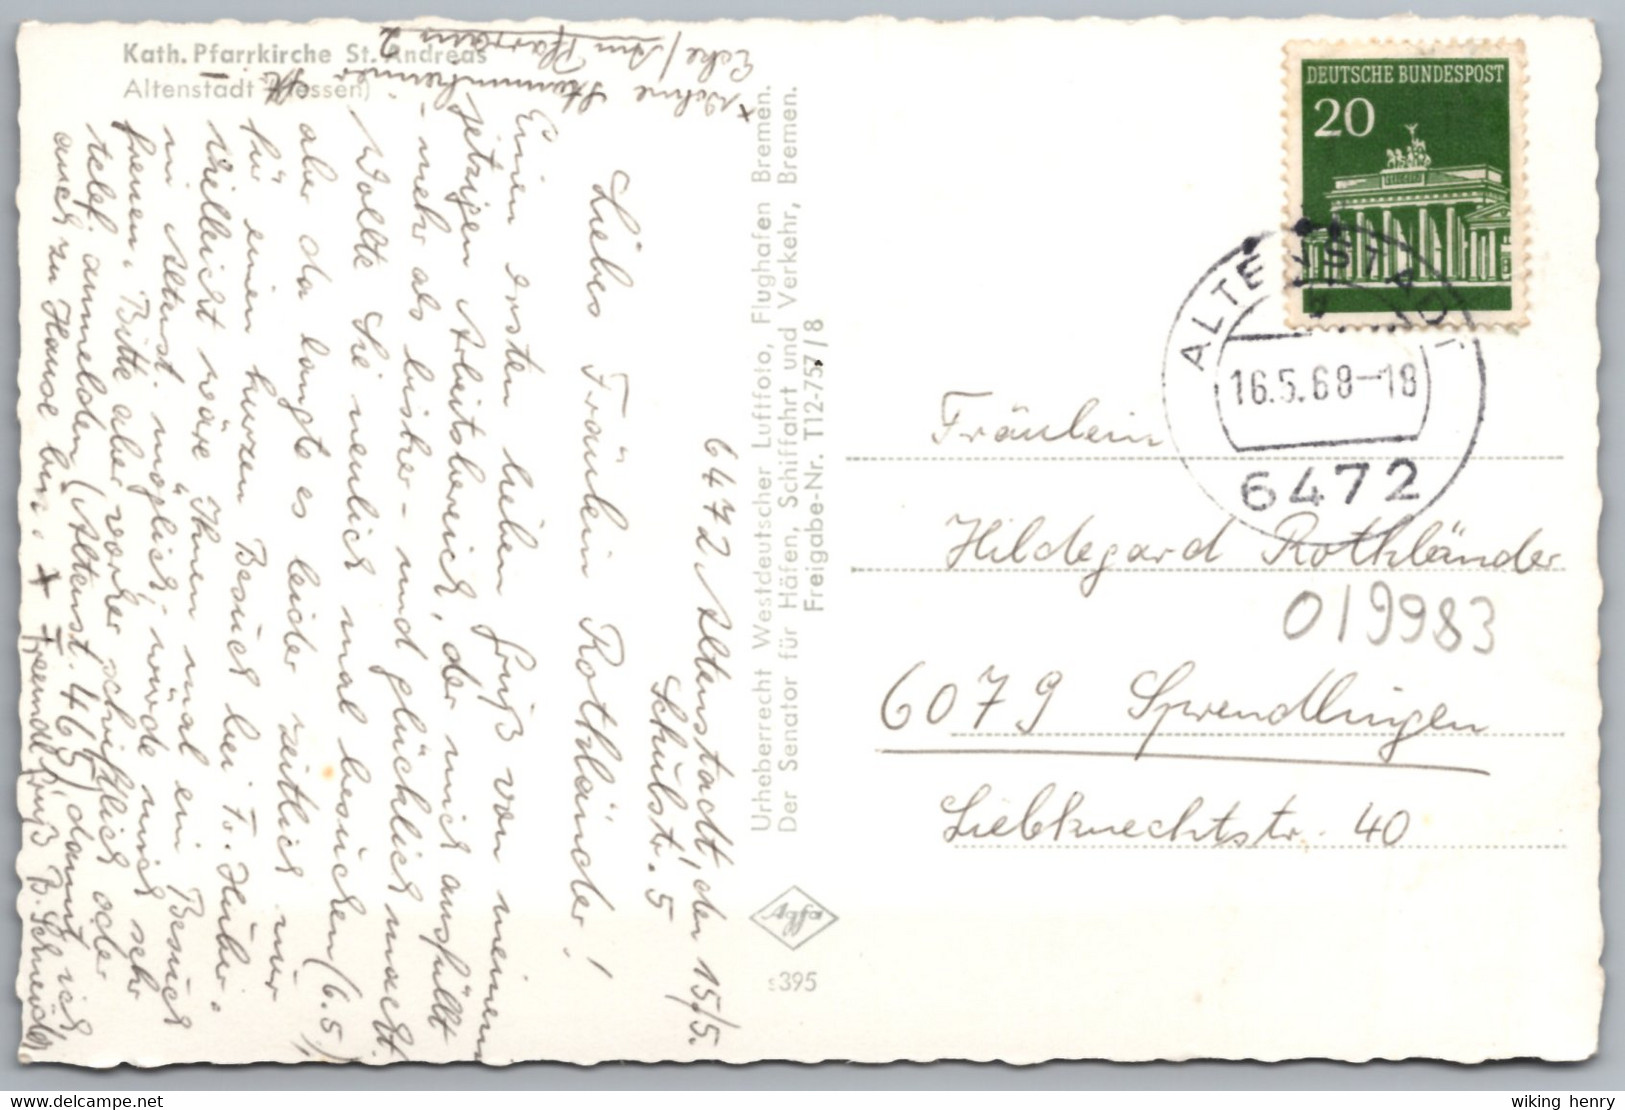 Kath. Pfarrkirche St. Andreas
Altenstadt (Hessen)
x Wohne
Stammheimer
Ecke / Am Pfarrain
2
6472 Altenstadt, den 15/5.
Schulstr. 5
Liebes Fräulein Rothländer!
Einen ersten lieben Gruß von meinem
jetzigen Arbeitsbereich, der mich ausfüllt
- mehr als bisher - und glücklich macht.
Wollte Sie neulich mal besuchen (6.5.),
aber da langte es leider zeitlich nur
für einen kurzen Besuch bei Fr. Huber.
Vielleicht wäre Ihnen mal ein Besuch
in Altenst. möglich, würde mich sehr
freuen. Bitte aber vorher schriftlich oder
telef. anmelden (Altenst. 465) damit ich
auch zu Hause bin. x Freundl. Gruß B. Schneider
Urheberrecht Westdeutscher Luftfoto, Flughafen Bremen.
Der Senator für Häfen, Schiffahrt und Verkehr, Bremen.
Freigabe-Nr. T12-757/8
Agfa
s395
DEUTSCHE BUNDESPOST
20
ALTENSTADT
16.5.68-18
6472
Fräulein
Hildegard Rothländer
019983
6079 Sprendlingen
Liebknechtstr. 40
wiking henry
delcampe.net